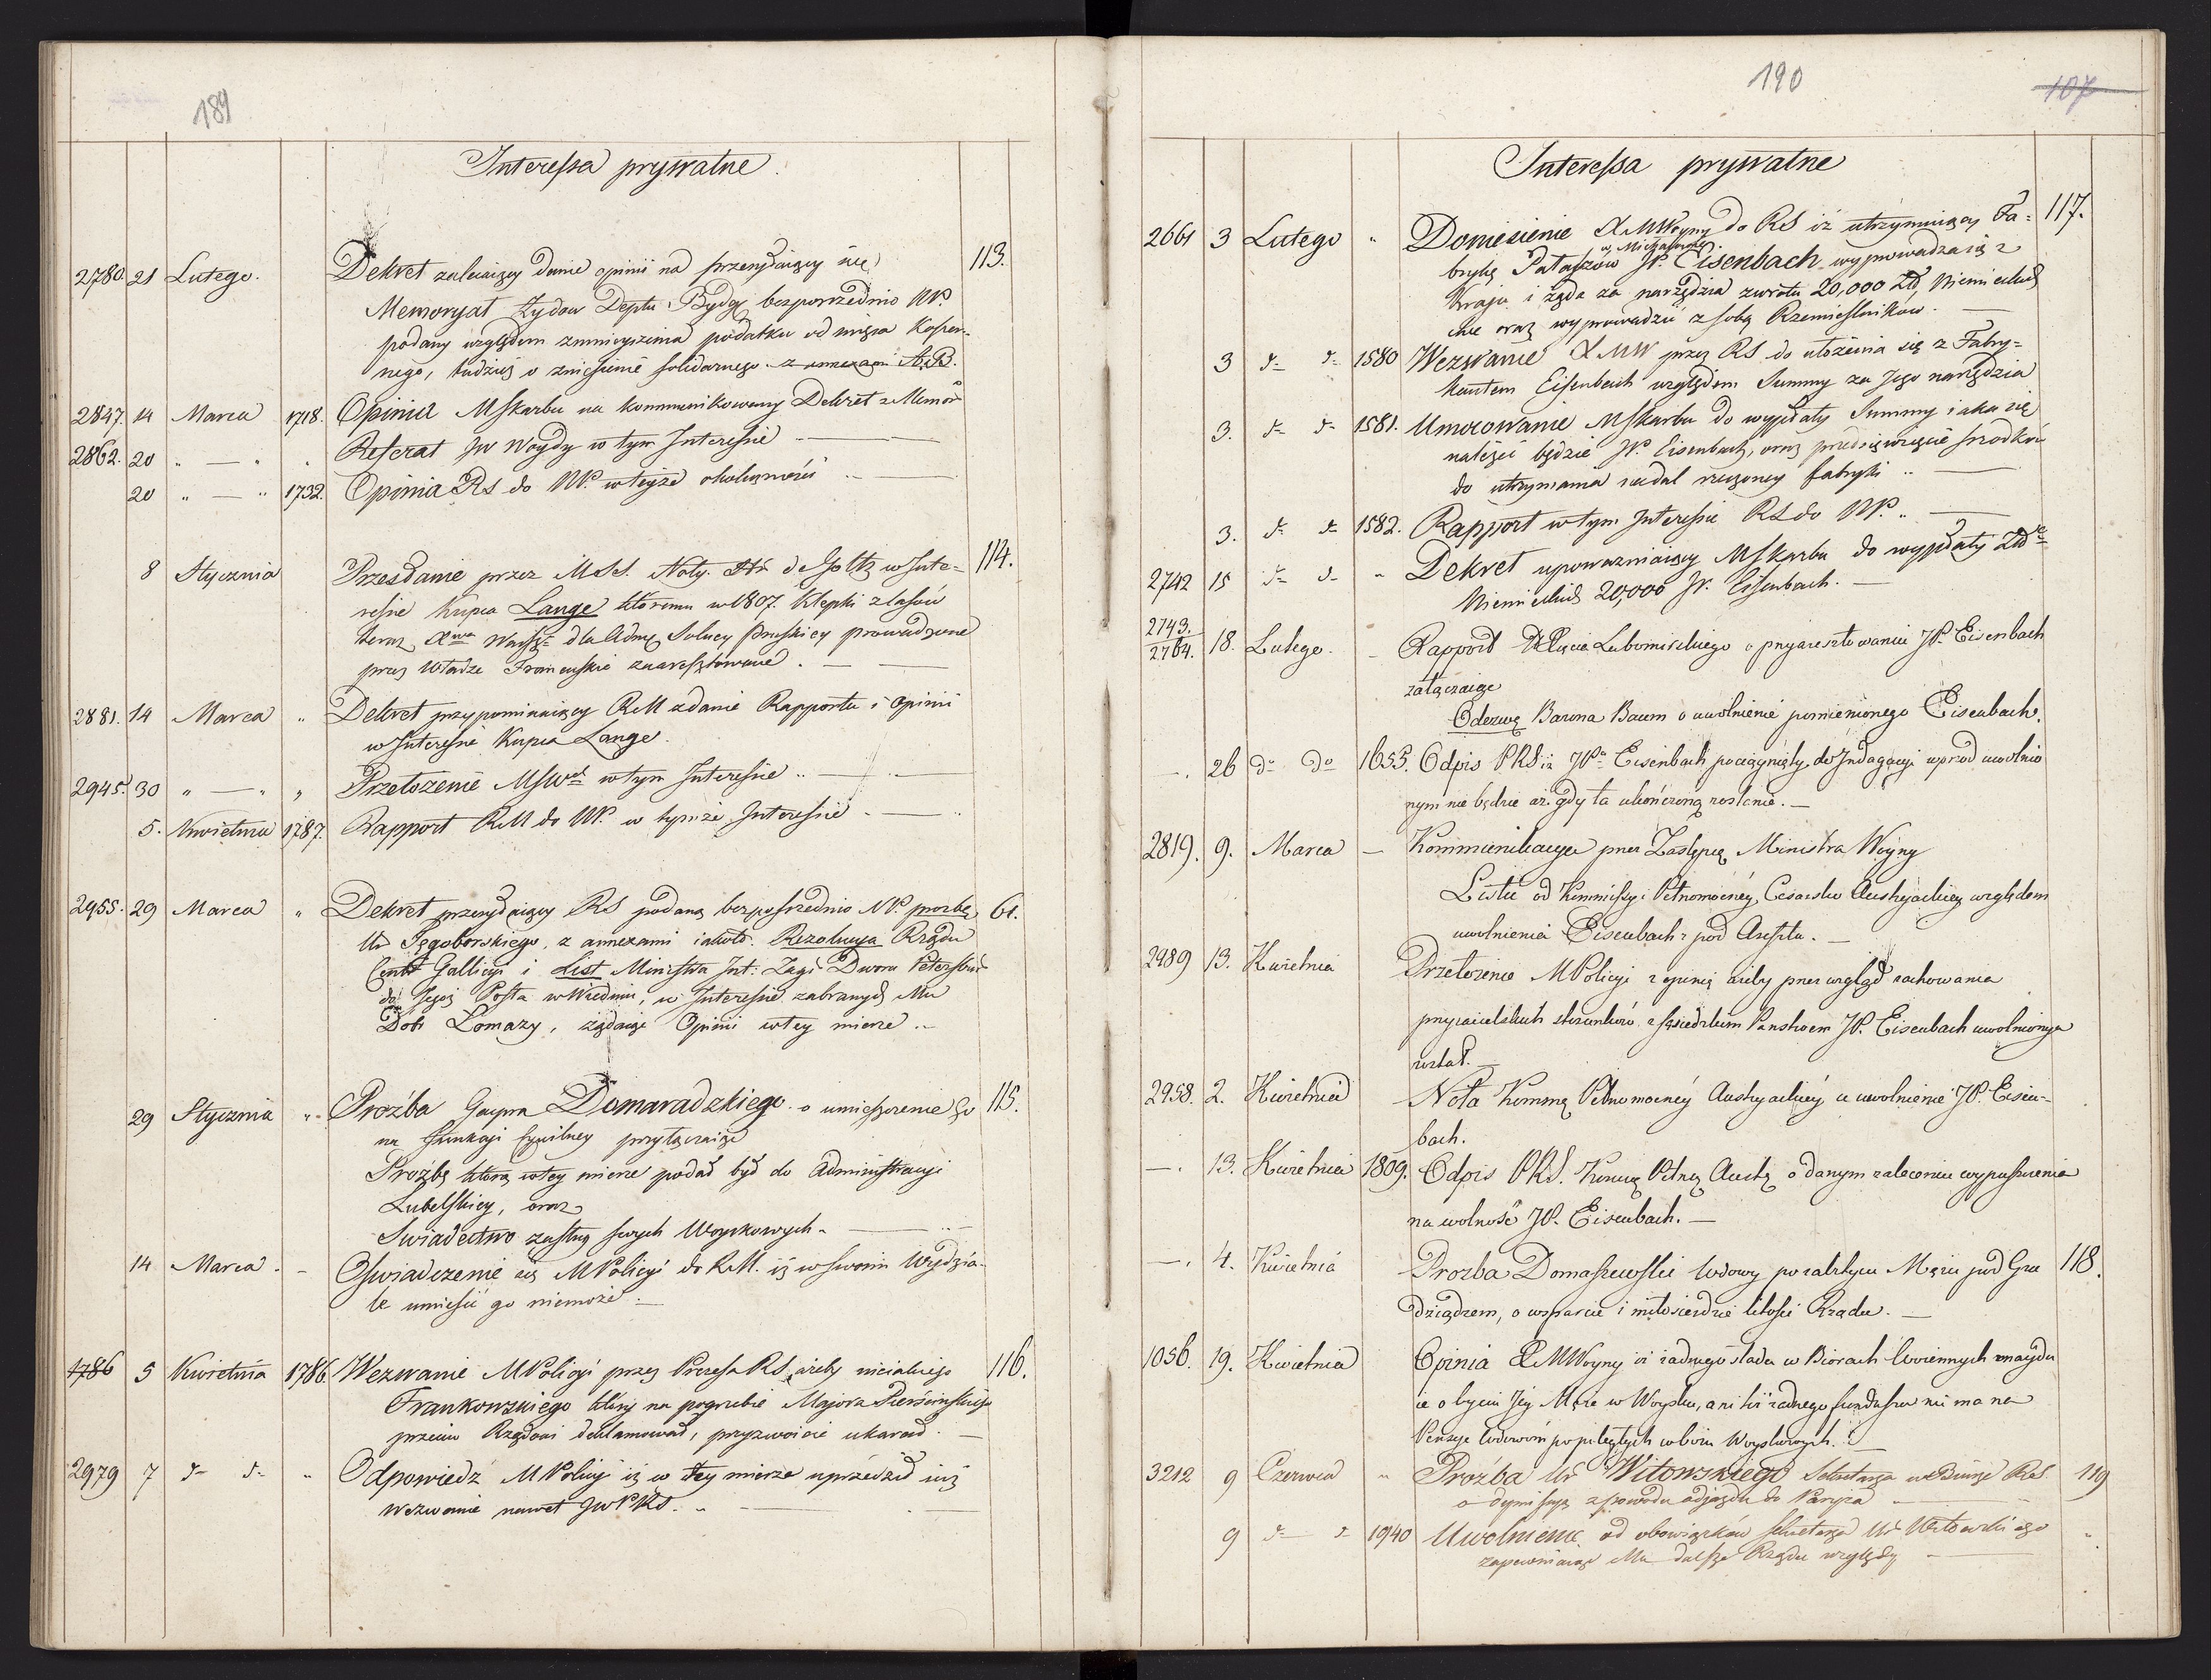 189
Interessa prywatne.
2780. 21 Lutego. Dekret zalecaiący danie opinii na przesyłaiący się 113.
Memoryał Żydow Deptu Bydg: bezpośrzednio NP.
podany względem zmnieyszenia podatku od mięsa Koszer-
nego, tudzież o zniesienie solidarnego. z annexami A.B.
2847. 14 Marca 1718. Opinia MSkarbu na kommunikowany Dekret z Memor
2862. 20 " — " " Referat JW Woydy w tym Interessie —
20 " — " 1732. Opinia RS do NP. w teyże okoliczności —
8 Stycznia Przesłanie przez MSS. Noty de Goltz w Inte- 114.
ressie Kupca Lange któremu w 1807. klepki z lasów
teraz Xtwa Warsz: dla Adm: Solney Pruskiey prowadzone
przez Władze Francuskie zaaresztowane. —
2881. 14 Marca " Dekret przypominaiący RM zdanie Rapportu i opinii
w Interessie Kupca Lange.
2945. 30 " — " " Przełożenie MSW w tym Interessie .. —
5. Kwietnia 1787. Rapport RM do NP. w tymże Interessie —
2955. 29 Marca " Dekret przesyłaiący RS podaną bezpośrzednio NP. prozbę 61.
Ur Tęgoborskiego, z annexami iakoto. Rezolucya Rządu
Cent: Gallicyi i List Ministra Int: Zagr: Dworu Petersbur
do Jegoż Posła w Wiedniu, w Interessie zabranych Mu
Dóbr Łomazy, żądaiąc Opinii w tey mierze ..
29 Stycznia " Prożba Gaspra Domaradzkiego o umieszczenie Go 115.
na funkcyi Cywilney przyłączaiąc
Prożbę którą w tey mierze podał był do Administracyi
Lubelskiey, oraz
Swiadectwo zasług swych Woyskowych. —
14 Marca. - Oświadczenie się MPolicyi do RM. iż w swoim Wydzia-
le umieścić go niemoże. —
1786 5 Kwietnia 1786. Wezwanie MPolicyi przez Prezesa RS, ażeby nieiakiego 116.
Frankowskiego który na pogrzebie Majora Pierścińskiego
przeciw Rządowi deklamował, przyzwoicie ukarał. —
2979 7 d- d- " Odpowiedź MPolicyi iż w tey mierze uprzedził iuż
wezwanie nawet JWPRS. ..
190
107
Interessa prywatne
2661 3 Lutego " Doniesienie XMWoyny do RS iż utrzymuiący Fa- 117.
brykę Patażów w Michałowie JP. Eisenbach wyprowadza się z
Kraju i żąda za narzędzia zwrotu 20,000 Zł Niemieckich
chce oraz wyprowadzić z sobą Rzemieślników. —
3 d- d- 1580 Wezwanie XMW przez RS do ułożenia się z Fabry-
kantem Eisenbach względem Summy za Jego narzędzia
3. d- d- 1581. Umocowanie MSkarbu do wypłaty Summy iaka się
należeć będzie JP. Eisenbach, oraz przedsięwzięcie srodków
do utrzymania nadal rzeczoney fabryki .. —
3. d- d- 1582. Rapport w tym Interessie RS do NP. .. —
2742 15 d- d- " Dekret upoważniaiący MSkarbu do wypłaty Zł
Niemieckich 20,000 JP. Eisenbach. —
2743.
2764. 18. Lutego. - Rapport Xięcia Lubomirskiego o przyaresztowaniu JP. Eisenbach
załączaiąc
Odezwę Barona Baum o uwolnienie pomienionego Eisenbach.
—. 26 do do 1655. Odpis PRS iż JP. Eisenbach pociągnięty do Indagacyi wprzod uwolnio
nym nie będzie aż gdy ta ukończoną zostanie. —
2819. 9. Marca — Kommunikacya przez Zastępcę Ministra Woyny
Listu od Kommissyi Pełnomocney Cesarsko Austryackiey względem
uwolnienia Eisenbach z pod Aresztu. —
2989 13. Kwietnia Przełożenie MPolicyi z opinią ażeby przez wzgląd zachowania
przyiacielskich stosunków z sąsiedzkim Panstwem JP. Eisenbach uwolnionym
został. —
2958. 2. Kwietnia Nota Komm: Pełnomocney Austryackiey o uwolnienie JP. Eisen-
bach.
—. 13. Kwietnia 1809. Odpis PRS. Komm: Pełney Austr: o danym zaleceniu wypuszczenia
na wolność JP. Eisenbach. —
—. 4. Kwietnia Prozba Domaszewskiey wdowy po zabitym Mężu pod Gru 118.
dziądzem, o wsparcie i miłosierdzie litości Rządu. —
1056. 19. Kwietnia Opinia XMWoyny iż żadnego sladu w Biorach Woiennych znayduie
się o byciu Jey Męża w Woysku, ani też żadnego funduszu nie ma na
Pensye wdowom po poległych w boiu Woyskowych. —
3212 9 Czerwca " Prożba Ur Witowskiego Sekretarza w Biurze RS. 119
o dymissyą z powodu odjazdu do Paryża —
9 d- d- 1940 Uwolnienie od obowiązków Sekretarza Ur Witowskiego "
zapewniaiąc Mu dalsze Rządu względy —